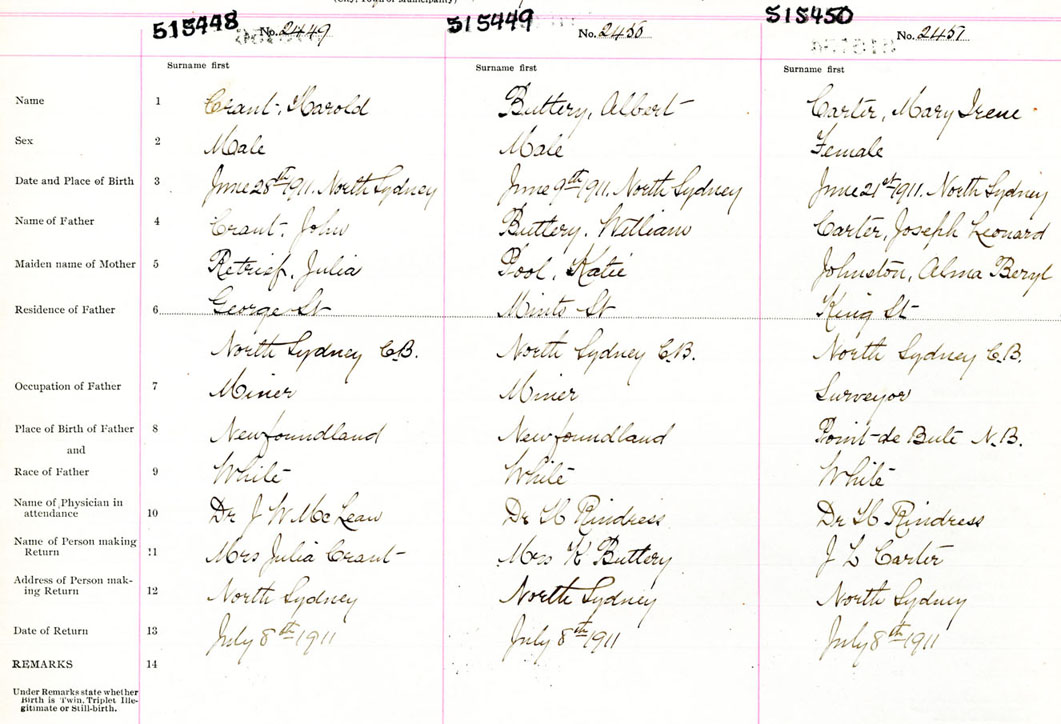 (City, Town or Municipality)
515448 No. 2449 515449 No. 2450 515450 No. 2451
Surname first Surname first Surname first
Name 1 Grant, Harold Buttery, Albert Carter, Mary Irene
Sex 2 Male Male Female
Date and Place of Birth 3 June 28th 1911. North Sydney June 9th 1911. North Sydney June 21st 1911. North Sydney
Name of Father 4 Grant, John Buttery, William Carter, Joseph Leonard
Maiden name of Mother 5 Julia Pool, Katie Johnston, Alma Beryl
Residence of Father 6 George St Minto St King St
North Sydney C.B. North Sydney C.B. North Sydney C.B.
Occupation of Father 7 Miner Miner Surveyor
Place of Birth of Father 8 Newfoundland Newfoundland Point de Bute N.B.
and
Race of Father 9 White White White
Name of Physician in
attendance 10 Dr J W McLean Dr H Rindress Dr H Rindress
Name of Person making
Return 11 Mrs Julia Grant Mrs K Buttery J L Carter
Address of Person mak-
ing Return 12 North Sydney North Sydney North Sydney
Date of Return 13 July 8th 1911 July 8th 1911 July 8th 1911
REMARKS 14
Under Remarks state whether
Birth is Twin, Triplet Ille-
gitimate or Still-birth.